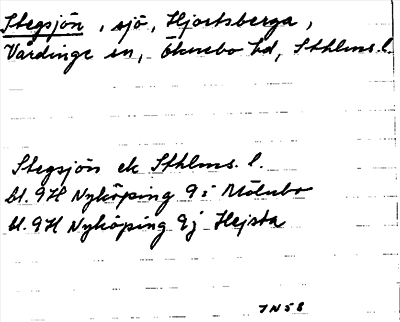 Stegsjön, sjö, Hjortsberga,
Vårdinge sn, Öknebo hd, Sthlms. l.
Stegsjön ek Sthlms. l.
bl. 9H Nyköping 9i Mölnbo
bl. 9H Nyköping 9j Hejsta
7N58